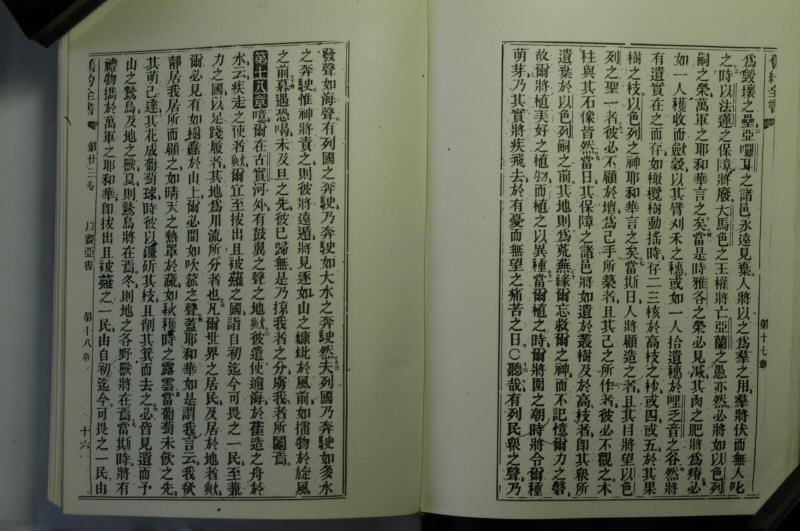 舊約全書
第十七章
爲毀壞之壘亞囉耳之諸邑永遠見棄人將以之爲羣之用羣將伏而無人叱
之時以法蓮之保障將廢大馬色之王權將亡亞蘭之愚亦然必將如以色列
嗣之榮萬軍之耶和華言之矣當是時雅各之榮必見減其肉之肥將爲瘠必
如一人穫收而斂穀以其臂刈禾之穗或如一人拾遺穗於哩乏音之谷然將
有遺實在之而存如橄欖樹動搖時存二三核於高枝之杪或四或五於其果
樹之枝以色列之神耶和華言之矣當斯日人將顧造之者且其目將望以色
列之聖一者彼必不顧於壇爲己手所築者且其己之所作者彼必不觀之木
柱與其石像皆然當日其保障之諸邑將如遺於叢樹及於高枝者即其衆所
遺棄於以色列嗣之前其地則爲荒蕪緣爾忘救爾之神而不記憶爾力之磐
故爾將植美好之植物而植之以異種當爾植之時爾將園之朝時將令爾種
萌芽乃其實將疾飛去於有憂而無望之痛苦之日○聽哉有列民衆之聲乃
發聲如海聲有列國之奔駛乃奔駛如大水之奔駛然夫列國乃奔駛如多水
之奔駛惟神將責之則彼將遠遁將見逐如山之糠粃於風前如擂物於旋風
之前暮遇恐喝未及旦之先彼已歸無是乃掠我者之分虜我者所鬮焉
第十八章噫爾在古實河外有鼓翼之聲之地歟彼遣使逾海於萑造之舟於
水云疾走之使者歟爾宜至拔出且被薙之國詣自初迄今可畏之一民至兼
力之國以足踐履者其地爲川流所分者也凡爾世界之居民及居於地者歟
爾必見有如樹纛於山上爾必聞如吹笳之聲蓋耶和華如是謂我言云我欲
靜居我居所而顧之如晴天之熱罩於蔬如秋穫時之露雲當葡萄未飲之先
其萌已達其花成葡萄球時彼以鐮研其枝且削其箕而去之必皆見遺而予
山之鷙鳥及地之獸夏則鷙鳥將在焉冬則地之各野獸將在焉當斯時將有
禮物攜於萬軍之耶和華即拔出且被薙之一民由自初迄今可畏之一民由
舊約全書
第廿三卷
以賽亞書
第十八章
十六